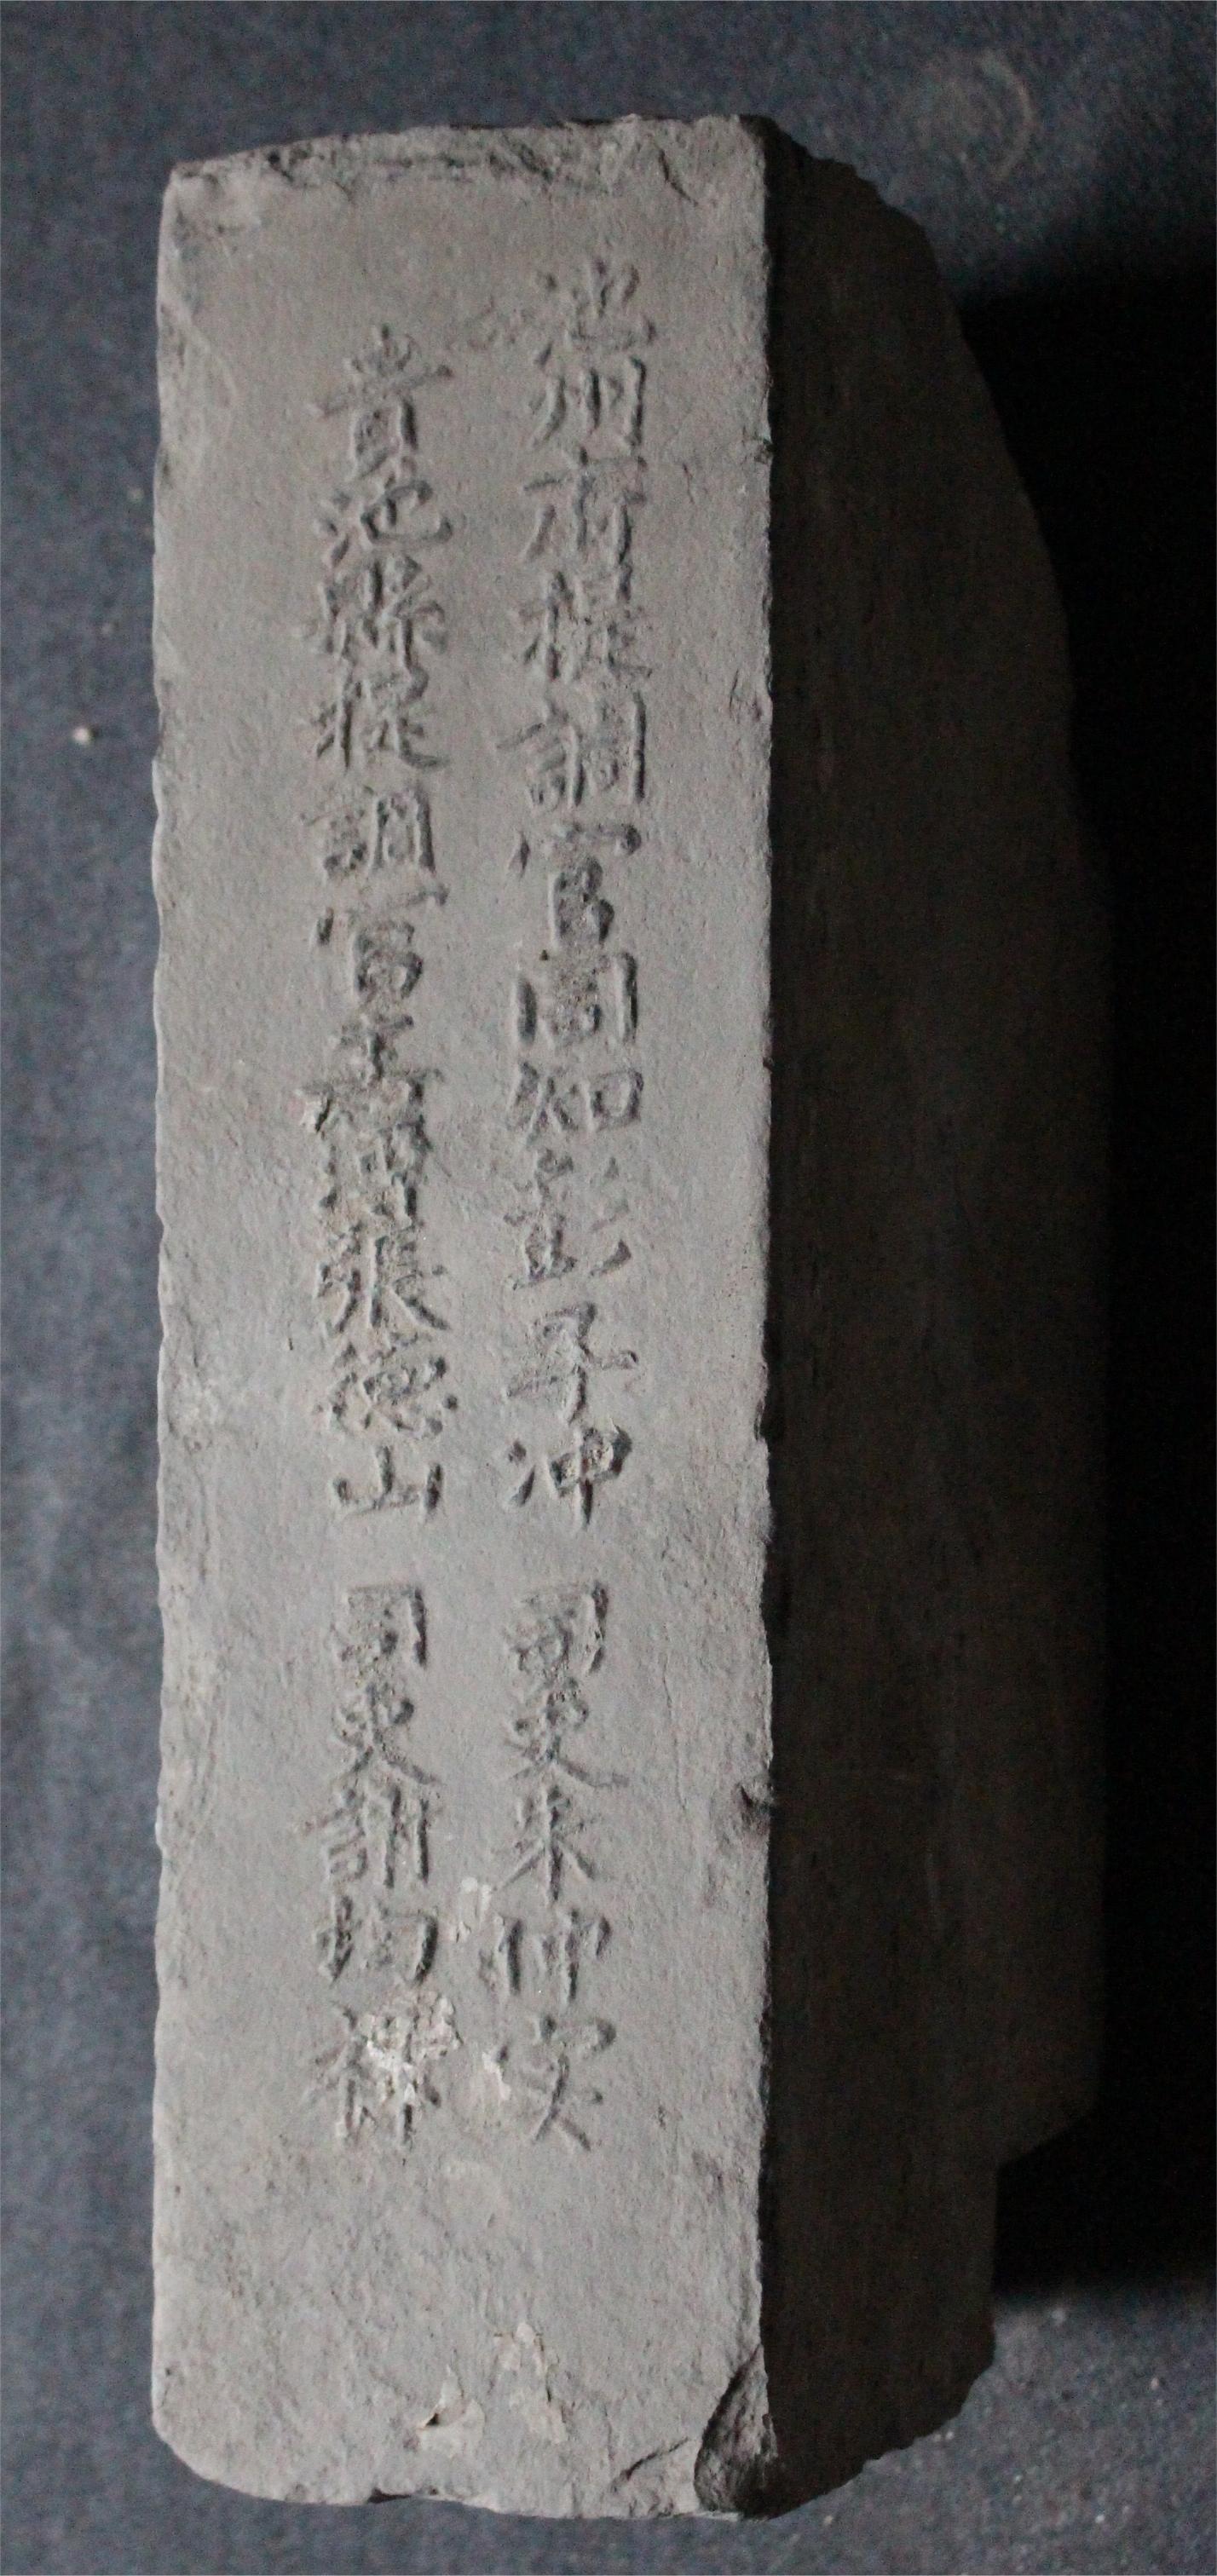 池州府提調官同知彭子冲 司吏朱仲实
貴池縣提調官主簿張德山 司吏胡均